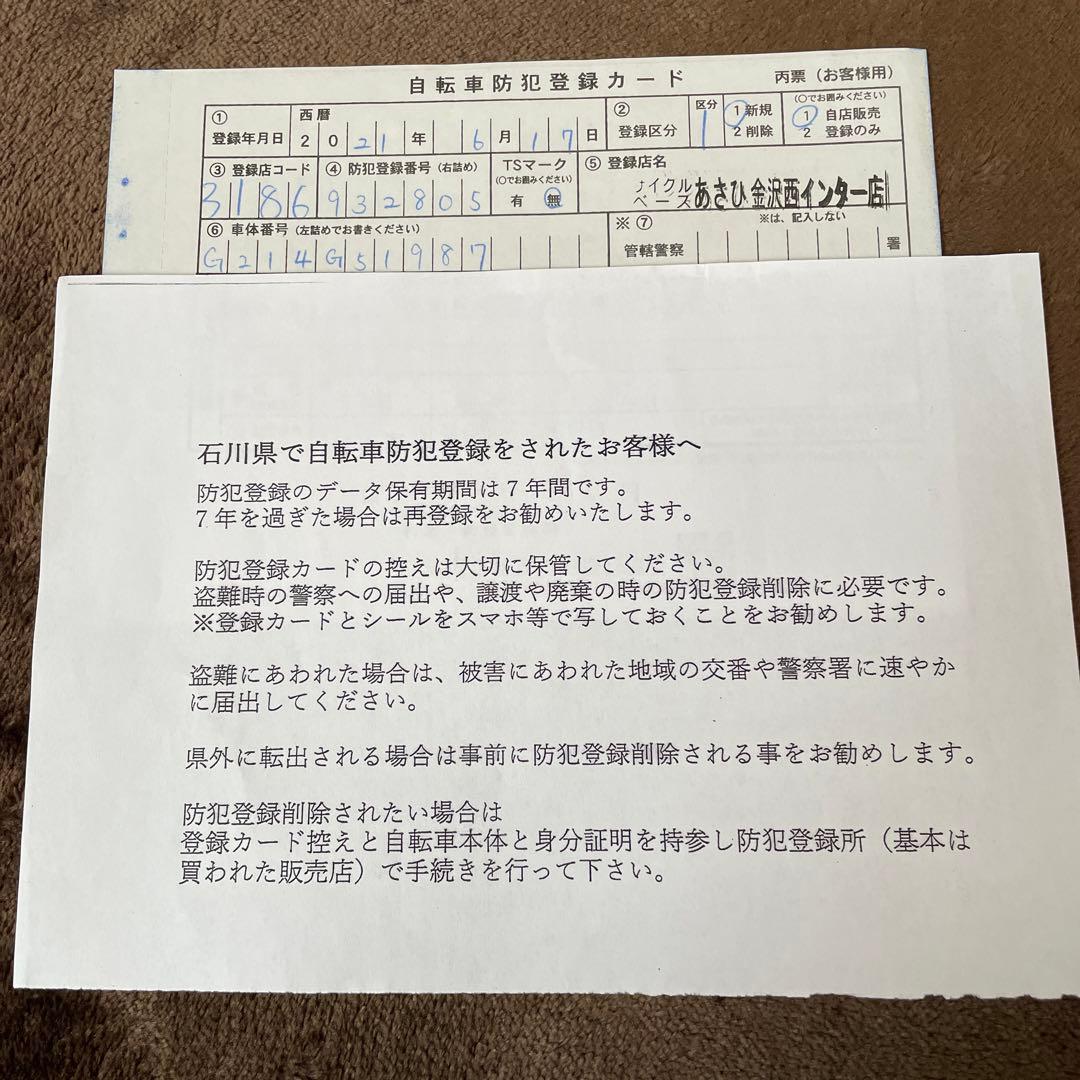 自転車防犯登録カード 丙票（お客様用）
① 登録年月日 西暦 2021年 6月17日 ② 登録区分 区分 1 1 新規 2 削除 （○でお囲みください） 1 自店販売 2 登録のみ
③ 登録店コード ④ 防犯登録番号（右詰め） TSマーク （○でお囲みください） 有 無 ⑤ 登録店名
3186 932805 サイクルベースあさひ 金沢西インター店
※は、記入しない
⑥ 車体番号（左詰めでお書きください） ※⑦ 管轄警察 署
G214G51987
石川県で自転車防犯登録をされたお客様へ
防犯登録のデータ保有期間は７年間です。
７年を過ぎた場合は再登録をお勧めいたします。
防犯登録カードの控えは大切に保管してください。
盗難時の警察への届出や、譲渡や廃棄の時の防犯登録削除に必要です。
※登録カードとシールをスマホ等で写しておくことをお勧めします。
盗難にあわれた場合は、被害にあわれた地域の交番や警察署に速やか
に届出してください。
県外に転出される場合は事前に防犯登録削除される事をお勧めします。
防犯登録削除されたい場合は
登録カード控えと自転車本体と身分証明を持参し防犯登録所（基本は
買われた販売店）で手続きを行って下さい。